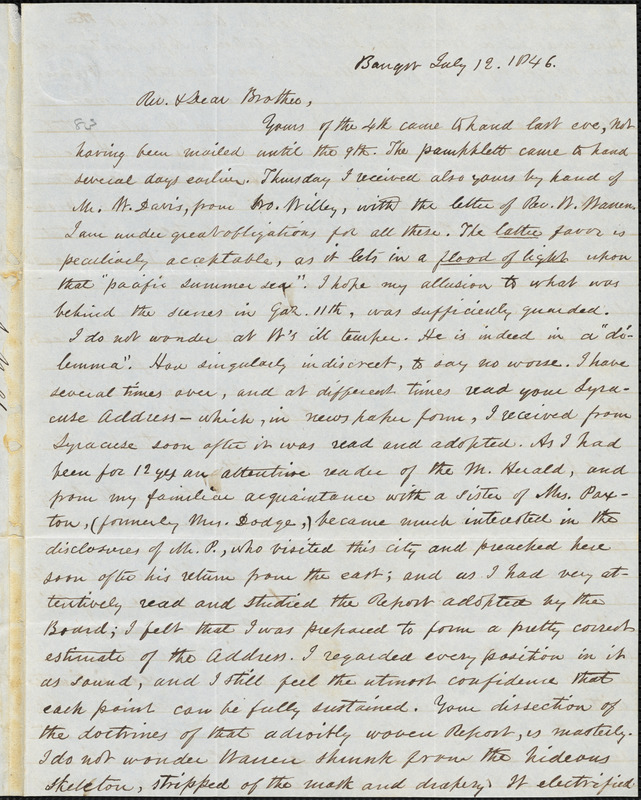 Bangor July 12. 1846.
Rev. & Dear Brother,
Yours of the 4th came to hand last eve, not
having been mailed until the 9th. The pamphlett came to hand
several days earlier. Thursday I received also yours by hand of
Mr. W. Davis, from Bro. Willey, with the letter of Rev. W. Warren.
I am under great obligations for all these. The latter favor is
peculiarly acceptable, as it lets in a flood of light upon
that "pacific summer sea". I hope my allusion to what was
behind the scenes in Gaz. 11th, was sufficiently guarded.
I do not wonder at W's ill temper. He is indeed in a "di-
lemma". How singularly indiscreet, to say no worse. I have
several times over, and at different times read your Syra-
cuse Address - which, in newspaper form, I received from
Syracuse soon after it was read and adopted. As I had
been for 12 yrs an attentive reader of the M. Herald, and
from my familiar acquaintance with a sister of Mrs. Pax-
ton, (formerly Mrs. Dodge,) became much interested in the
disclosures of Mr. P., who visited this city and preached here
soon after his return from the east; and as I had very at-
tentively read and studied the Report adopted by the
Board; I felt that I was prepared to form a pretty correct
estimate of the Address. I regarded every position in it
as sound, and I still feel the utmost confidence that
each point can be fully sustained. Your dissection of
the doctrines of that adroitly woven Report, is masterly.
I do not wonder Warren shrunk from the hideous
skeleton, stripped of the mask and drapery. It electrified